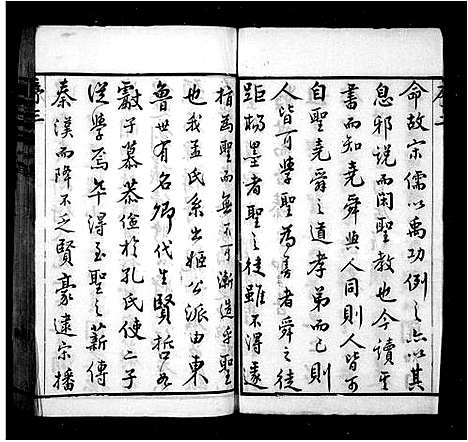 序二
命故宋儒以禹功例之亦以其
息邪说而閑聖教也今讀其
書而知堯舜與人同則人皆可
自聖堯舜之道孝弟而已則
人皆可學聖為善者舜之徒
距楊墨者聖之徒雖不得遽
指為聖而無不可漸造乎聖
也我孟氏系出姬公派由東
魯世有名卿代生賢哲
敷子慕恭儉於孔氏使二子
從學焉卒得至聖之薪傳
秦漢而降不乏賢豪逮宗播
序三